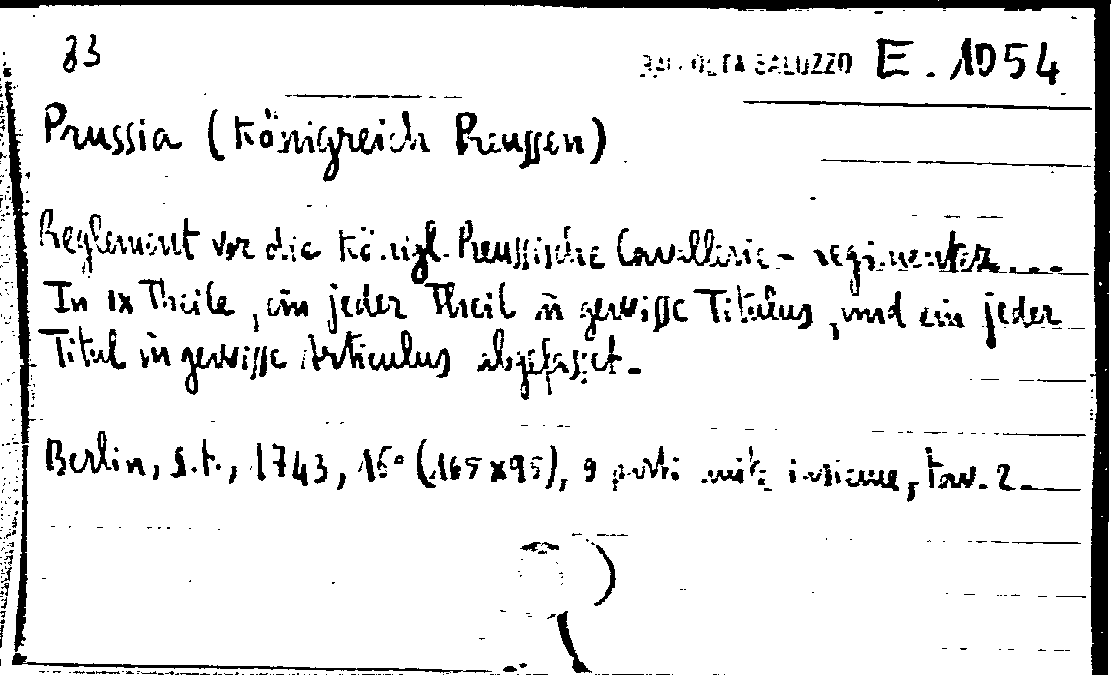 83
RACCOLTA SALUZZO E. 1054
Prussia (Königreich Preussen)
Reglement vor die Königl. Preussische Cavallerie - regimenter....
In IX Theile, ein jeder Theil in gewisse Titulus, und ein jeder
Titul in gewisse Articulus abgefasset.
Berlin, s.t., 1743, 16° (165x95), 9 parti unite insieme, tav. 2.